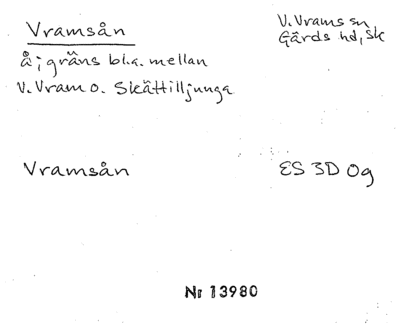 Vramsån
V. Vrams sn
Gärds hd, Sk
Å; gräns bl.a. mellan
V. Vram o. Skättilljunga
Vramsån
ES 3D 0g
Nr 13980